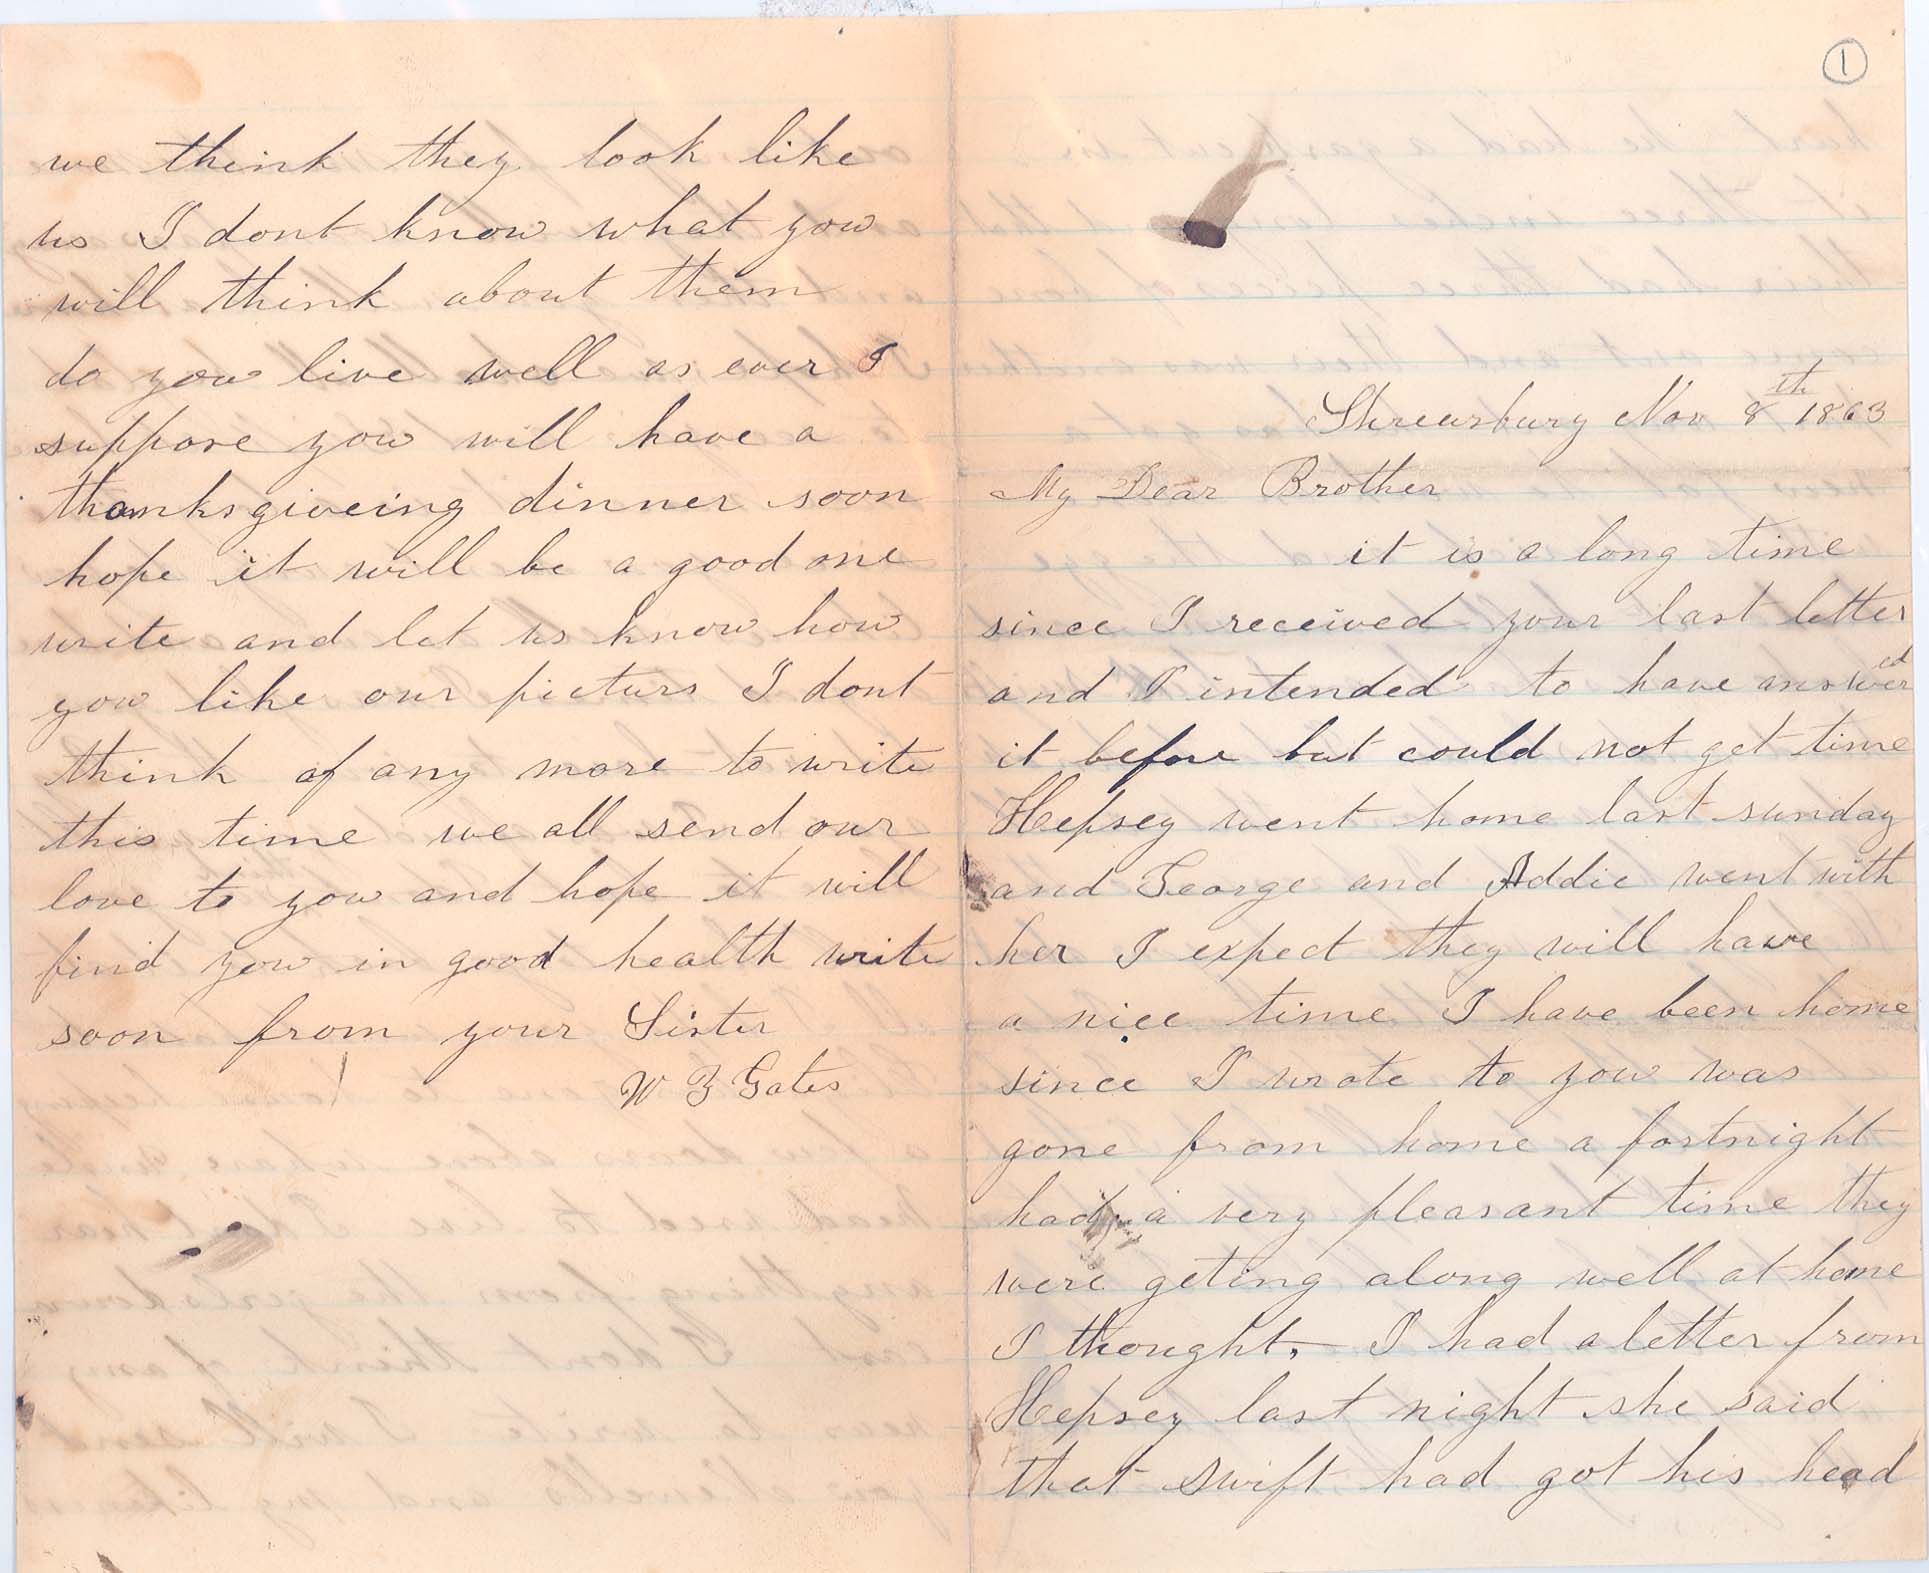 1
Shrewsbury Nov 8th 1863
My Dear Brother
it is a long time
since I received your last letter
and I intended to have answered
it before but could not get time
Hepsey went home last sunday
and George and Addie went with
her I expect they will have
a nice time I have been home
since I wrote to you was
gone from home a fortnight
had a very pleasant time they
were geting along well at home
I thought, I had a letter from
Hepsey last night she said
that Swift had got his head
we think they look like
us I dont know what you
will think about them
do you live well as ever I
suppose you will have a
thanksgiveing dinner soon
hope it will be a good one
write and let us know how
you like our picturs I dont
think of any more to write
this time we all send our
love to you and hope it will
find you in good health write
soon from your Sister
W Z Gates